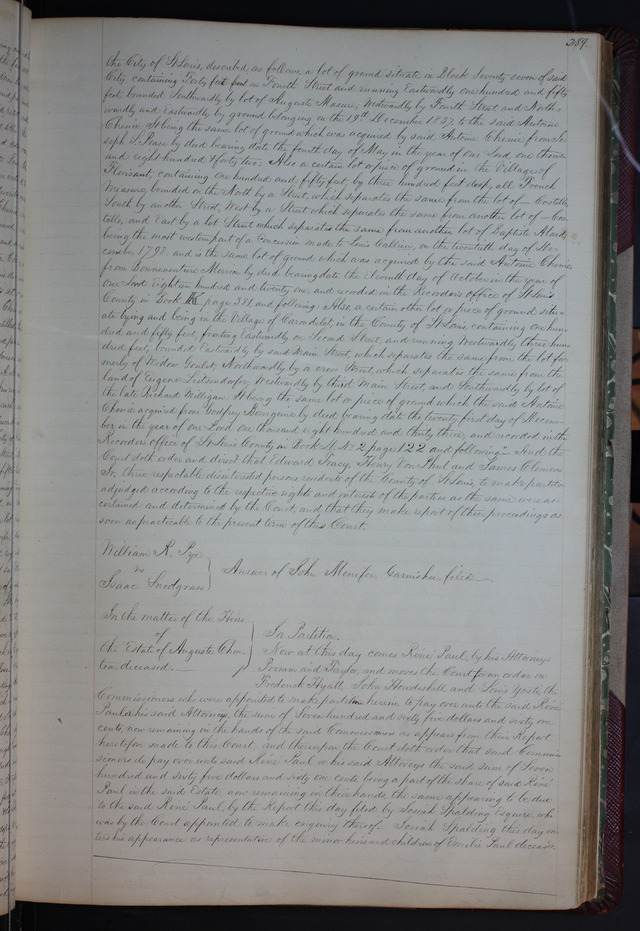 389.
the City of St Louis, described as follows, a lot of ground situate in Block Seventy seven of said
City containing Forty feet front on Fourth Street and running Eastwardly one hundred and fifty
feet, bounded Southwardly by lot of Auguste Masure, Westwardly by Fourth Street and North-
wardly and Eastwardly by ground belonging on the 19th December 1837, to the said Antoine
Chenie It being the same lot of ground which was acquired by said Antoine Chenie from Jo-
seph L. Pease by deed bearing date the fourth day of May in the year of our Lord one thous-
and eight hundred & forty two. Also a certain lot or piece of ground in the Village of
Florisant, containing one hundred and fifty feet, by three hundred feet deep, all French
Measure, bounded on the North by a Street, which separates the same from the lot of — Costello,
South by another Street, West by a Street which separates the same from another lot of — Cos-
tello, and East by a lot Street which separates the same from another lot of Baptiste
being the most western part of a Concession made to Louis on the twentieth day of De-
cember 1798 and is the same lot of ground which was acquired by the said Antoine Chenie
from Bonnaventure by deed bearing date the Eleventh day of October in the year of
our Lord Eighteen hundred and twenty one, and recorded in the Recorders office of St Louis
County in Book K page 381 and following: Also, a certain other lot or piece of ground situ-
ate lying and being in the Village of Carondelet, in the County of St Louis, containing one hun-
dred and fifty feet, fronting Eastwardly on Second Street, and running Westwardly three hun-
dred feet, bounded Eastwardly by said Main Street, which separates the same from the lot for-
merly of Widow Northwardly by a cross Street, which separates the same from the
land of Eugene Leitensdorfer, Westwardly by third Main Street, and Southwardly by lot of
the late Richard Milligan It being the same lot or piece of ground which the said Antoine
Chenie acquired from Godfrey by deed bearing date the twenty first day of Novem-
ber in the year of our Lord one thousand eight hundred and thirty three, and recorded in the
Recorders office of St Louis County in Book No 2 page 122 and following. And the
Court doth order and direct that Edward Tracy, Henry Von Phul and James Clemens
Jr, three respectable disinterested persons residents of the County of St Louis, to make partition
adjudged according to the respective rights and interests of the parties as the same were as-
certained and determined by the Court and that they make report of their proceedings as
soon as practicable to the present term of this Court.
William R. Pye
vs
Isaac Snodgrass
Answer of John Menifer Garnishee, filed
In the matter of the Heirs
of
the Estate of Auguste Chou
teau deceased.
In Partition.
Now at this day comes René Paul, by his Attorneys
and Taylor, and moves the Court for an order on
Frederick Hyatt, John and Louis Yosti, the
Commissioners who were appointed to make partition herein, to pay over unto the said René
Paul or his said Attorneys, the sum of Seven hundred and sixty five dollars and sixty one
cents, now remaining in the hands of the said Commissioners as appears from their Report
heretofore made to this Court, and thereupon the Court doth order that said Commis-
sioners do pay over unto said René Paul or his said Attorneys the said sum of Seven
hundred and sixty five dollars and sixty one cents being a part of the share of said René
Paul in the said Estate, now remaining in their hands, the same appearing to be due
to the said René Paul, by the Report this day filed by Josiah Spalding Esquire, who
was by the Court appointed to make enquiry thereof. Josiah Spalding this day en-
ters his appearance as representative of the minor heirs and children of Emilie Paul deceased.